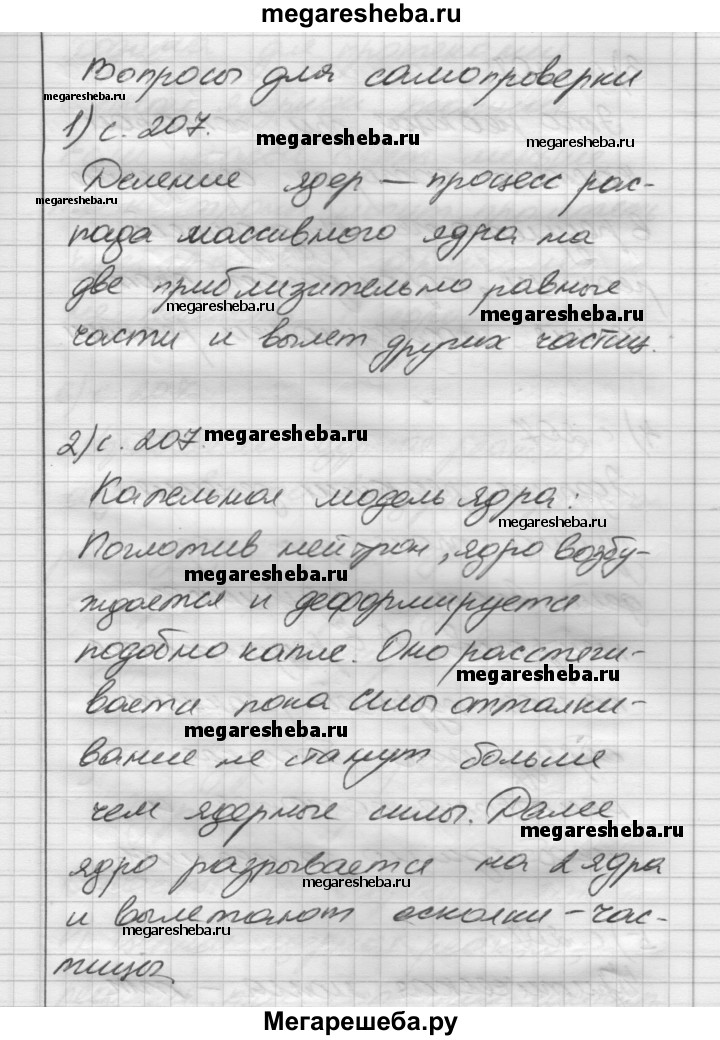 megaresheba.ru
Вопросы для самопроверки
megaresheba.ru
1) с. 207.
megaresheba.ru
Деление ядер – процесс рас-
megaresheba.ru
пада массивного ядра на
две приблизительно равные
megaresheba.ru
megaresheba.ru
части и вылет других частиц.
2) с. 207.
megaresheba.ru
Капельная модель ядра:
megaresheba.ru
Поглотив нейтрон, ядро возбу-
megaresheba.ru
ждается и деформируется
подобно капле. Оно расстяги-
megaresheba.ru
вается пока силы отталки-
megaresheba.ru
вание не станут больше
чем ядерные силы. Далее
megaresheba.ru
ядро разрывается на 2 ядра
megaresheba.ru
и вылетают осколки – час-
megaresheba.ru
тицы
Мегарешеба.ру